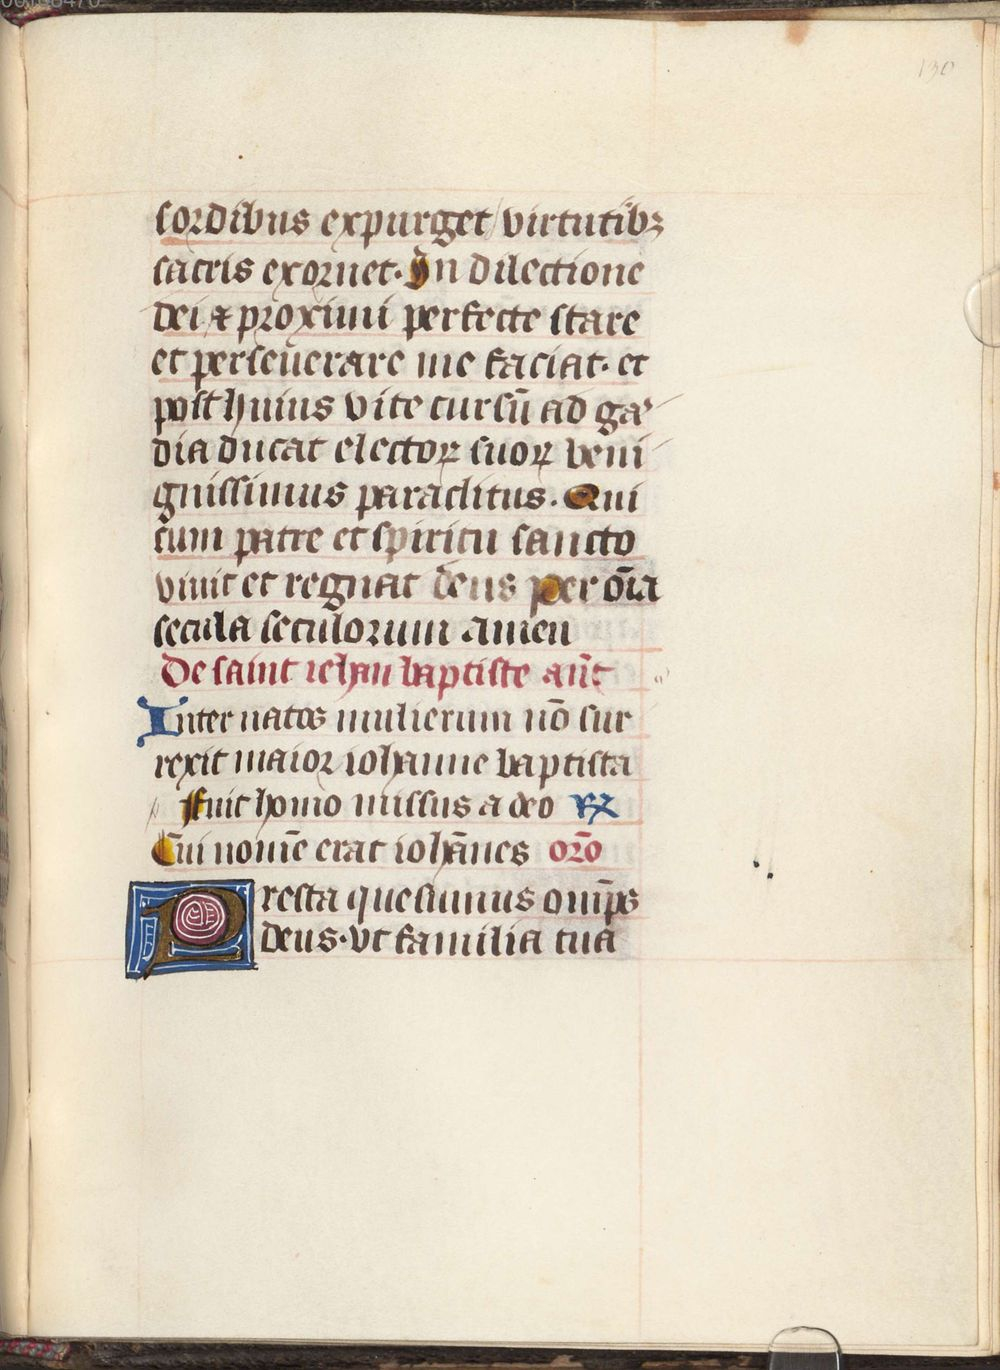 130
sordibus expurget / virtutibꝫ
sacris exornet. In dilectione
dei ⁊ proximi perfecte stare
et perseūerare me faciat. et
post huius vite cursū ad ga
dia ducat electoꝝ suoꝝ beni
gnissimus paraclitus. Qui
cum patre et spiritu sancto
viuit et regnat deus per oīa
secula seculorum amen
De saint iehan baptiste añt
Inter natos mulierum nō sur
rexit maior iohanne baptista
Fuit homo missus a deo ℞
Cui nomē erat iohānes orō
Presta quesumus omīps
deus. vt familia tua